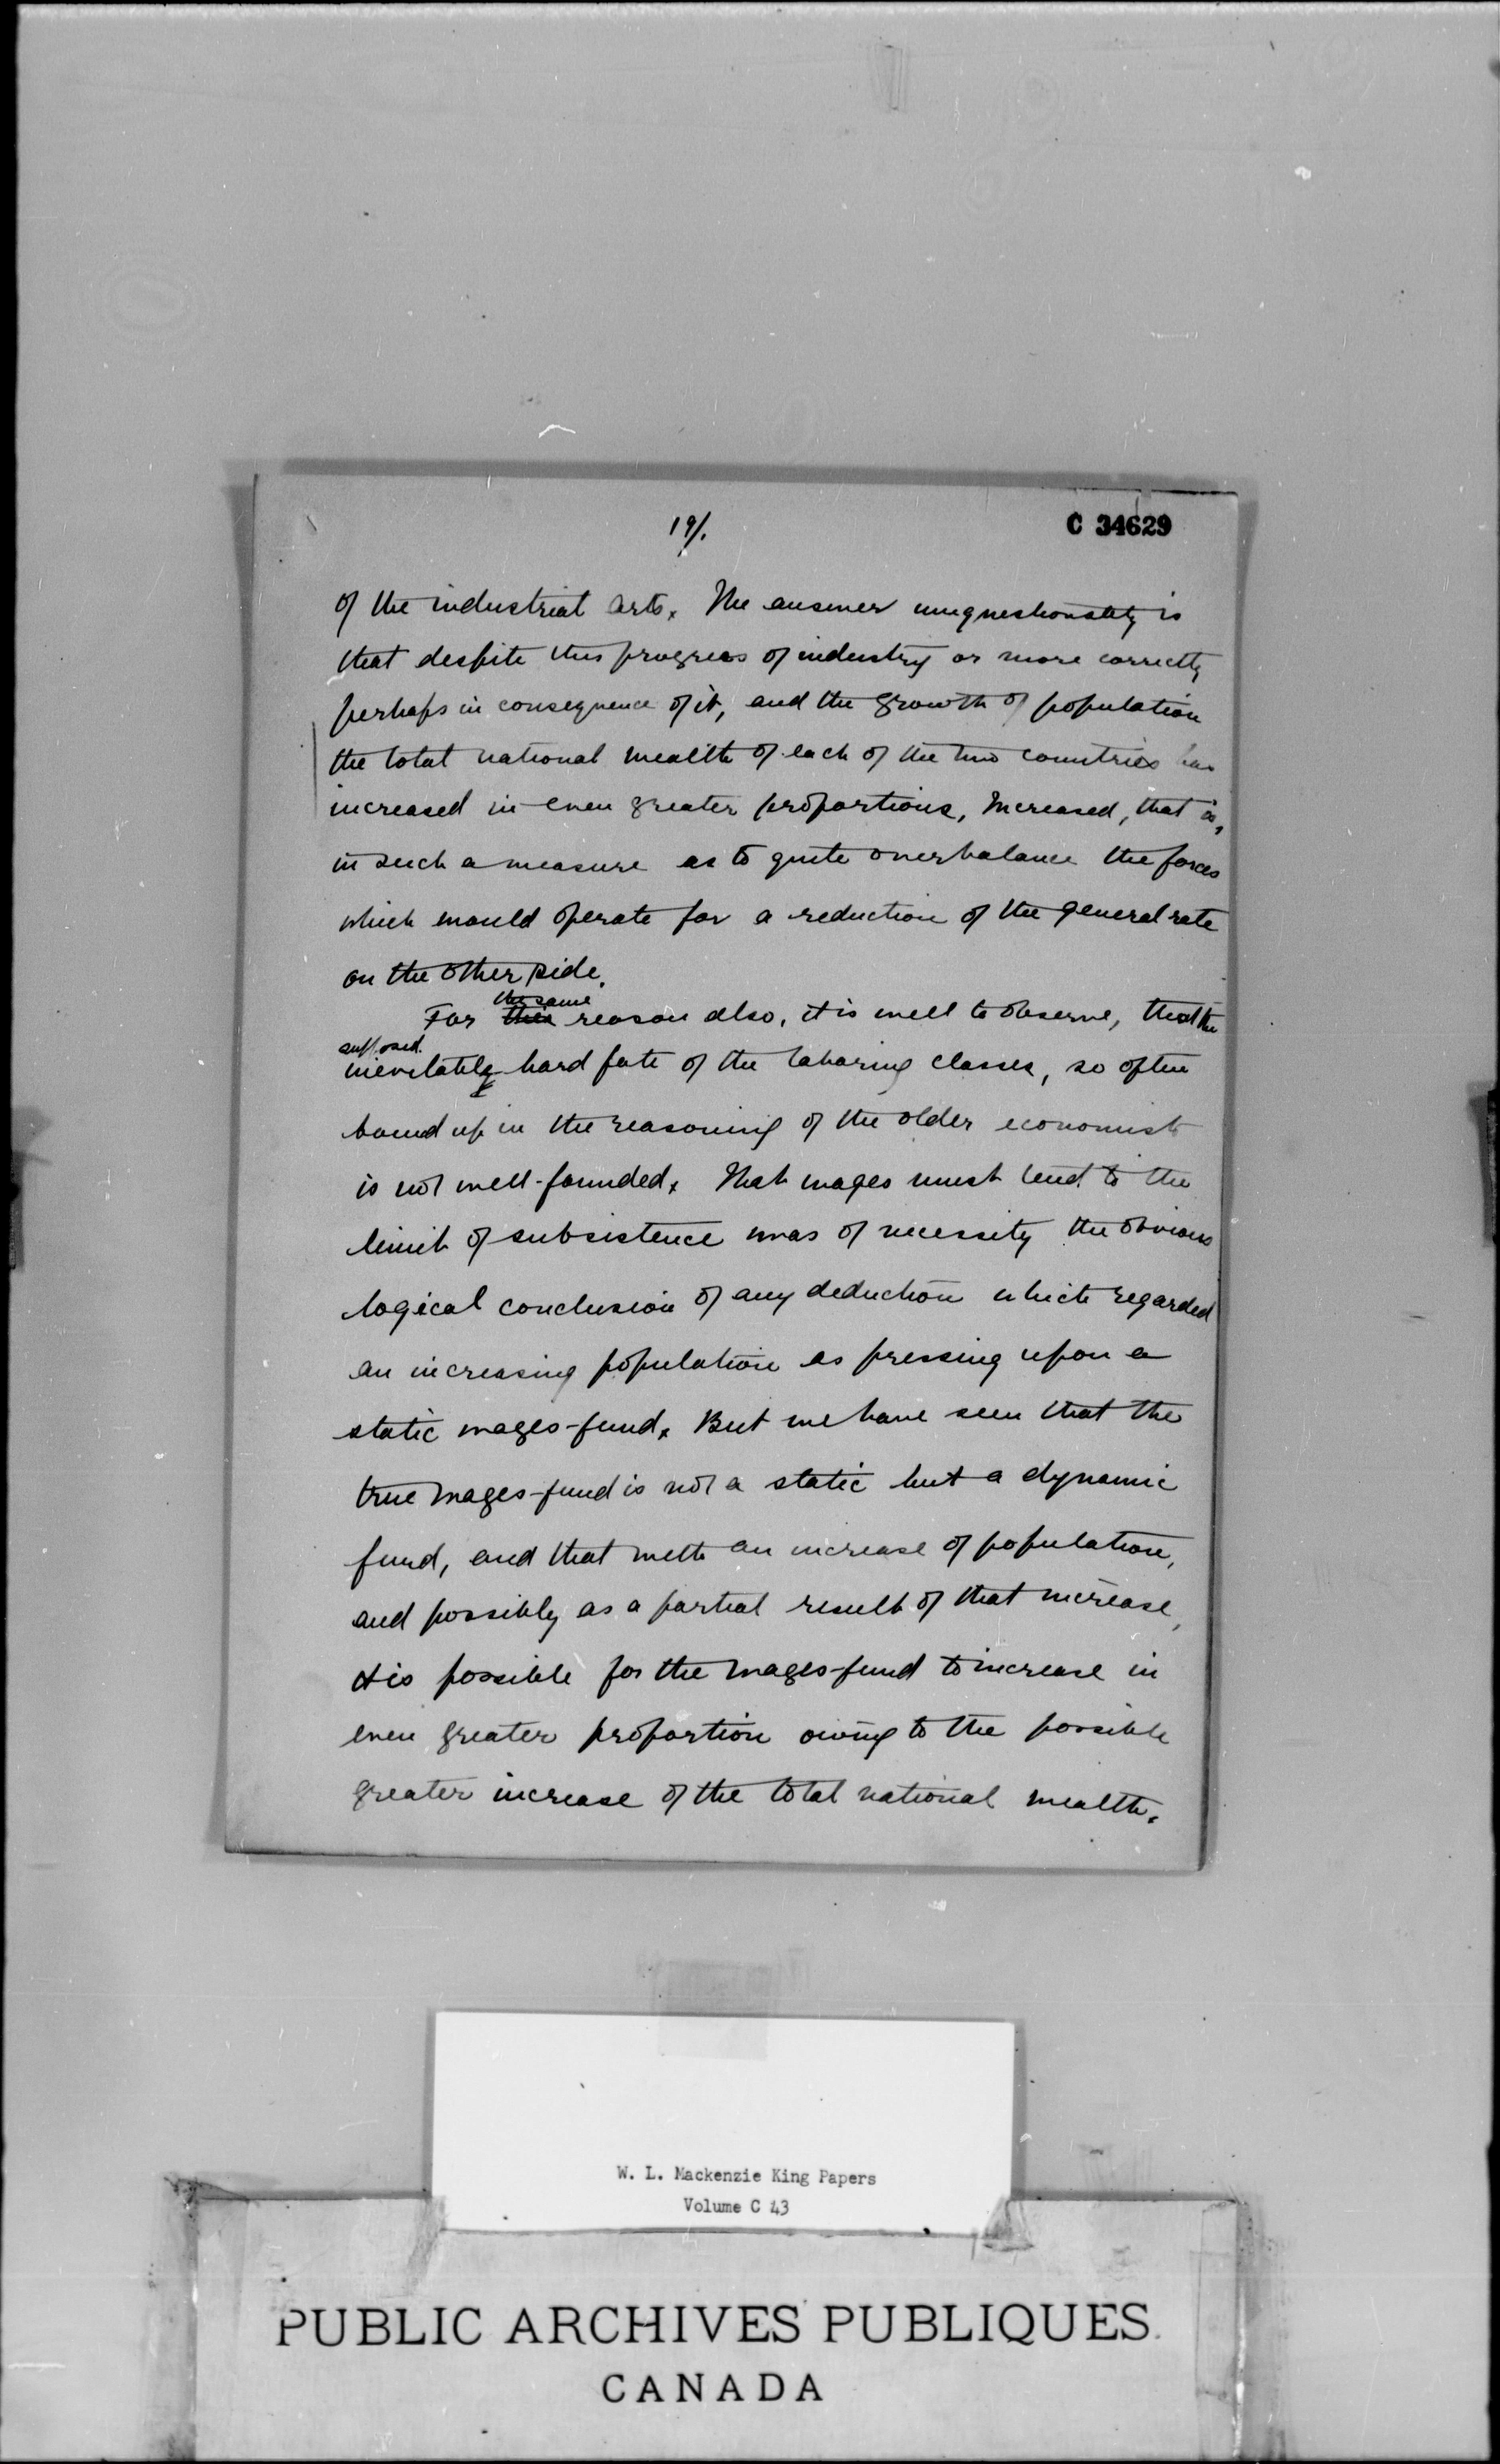 19/.
C 34629
of the industrial arts. The answer unquestionably is
that despite this progress of industry or more correctly
perhaps in consequence of it, and the growth of population
the total national wealth of each of the two countries has
increased in even greater proportions, Increased, that is,
in such a measure as to quite overbalance the forces
which would operate for a reduction of the general rate
on the other side.
the same
For this reason also, it is well to observe, that the
supposed
inevitably hard fate of the laboring classes, so often
bound up in the reasoning of the older economists
is not well-founded. That wages must tend to the
limit of subsistence was of necessity the obvious
logical conclusion of any deduction which regarded
an increasing population as pressing upon a
static wages-fund. But we have seen that the
true wages-fund is not a static but a dynamic
fund, and that with an increase of population,
and possibly as a partial result of that increase,
it is possible for the wages-fund to increase in
even greater proportion owing to the possible
greater increase of the total national wealth.
W. L. Mackenzie King Papers
Volume C 43
PUBLIC ARCHIVES PUBLIQUES
CANADA